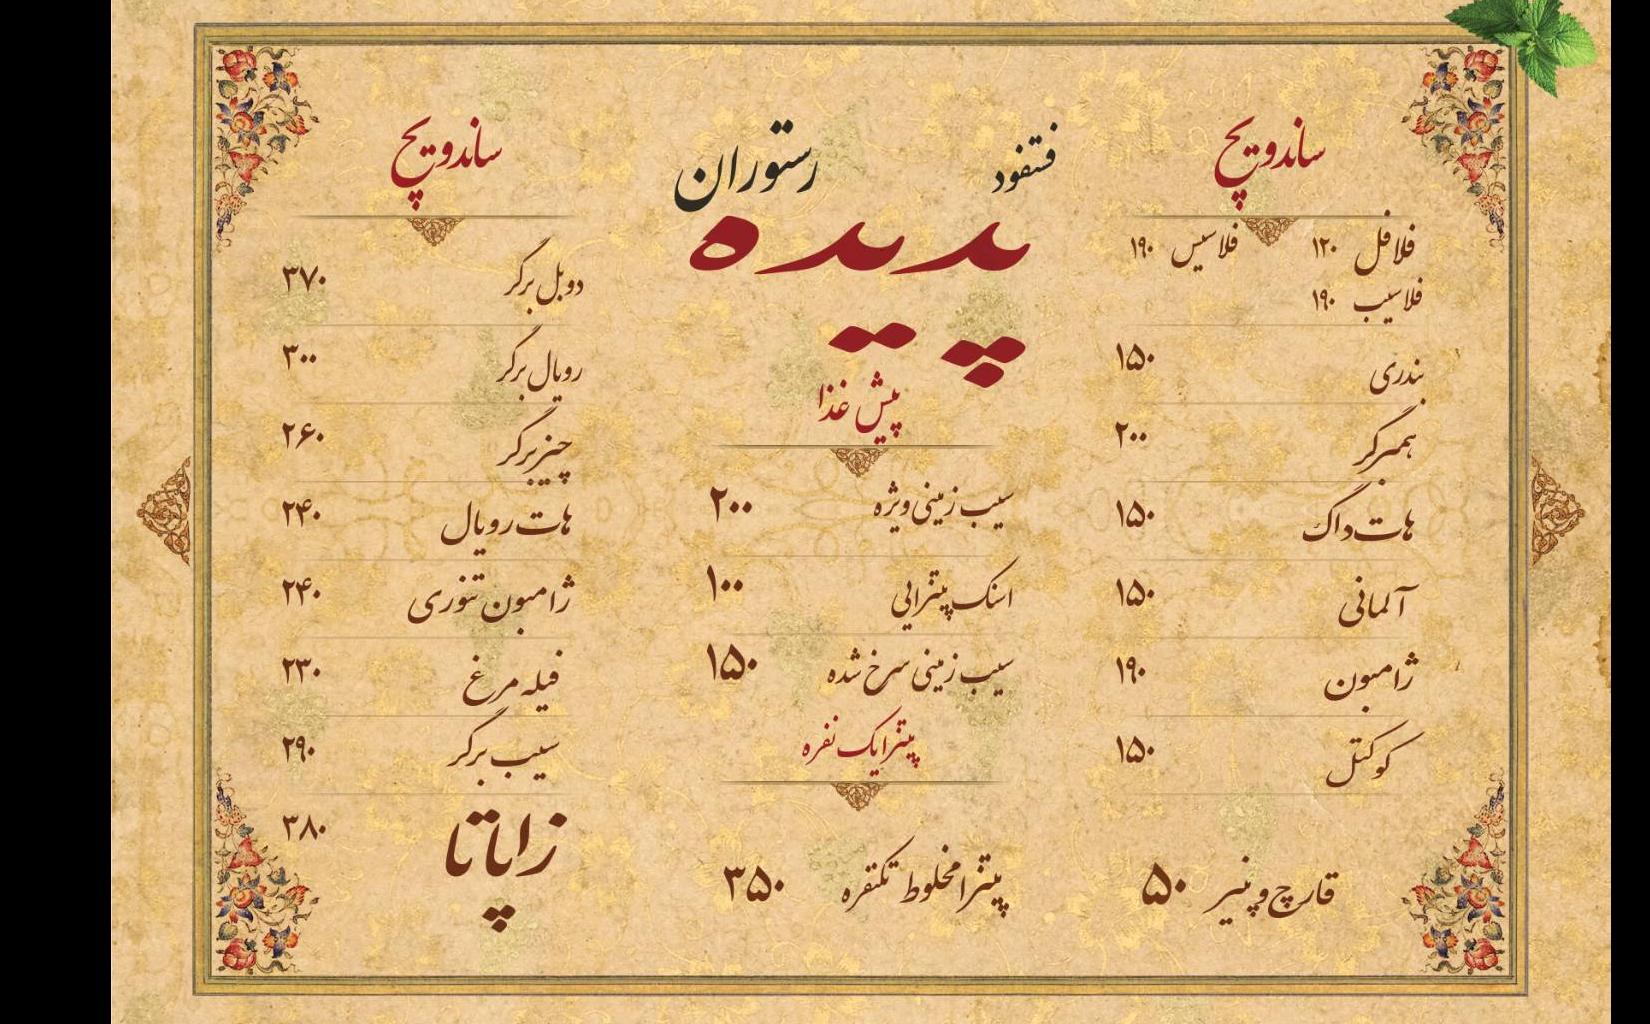 فستفود رستوران
پدیده
ساندویچ
فلافل ۱۲۰ فلاسیس ۱۹۰
فلاسیب ۱۹۰
بندری ۱۵۰
همبرگر ۲۰۰
هات داگ ۱۵۰
آلمانی ۱۵۰
ژامبون ۱۹۰
کوکتل ۱۵۰
قارچ و پنیر ۵۰
پیش غذا
سیب زمینی ویژه ۲۰۰
اسنک پیتزایی ۱۰۰
سیب زمینی سرخ شده ۱۵۰
پیتزا یک نفره
پیتزا مخلوط تکنفره ۳۵۰
ساندویچ
دوبل برگر ۳۷۰
رویال برگر ۳۰۰
چیز برگر ۲۶۰
هات رویال ۲۴۰
ژامبون تنوری ۲۴۰
فیله مرغ ۲۳۰
سیب برگر ۲۹۰
زاپاتا ۳۸۰